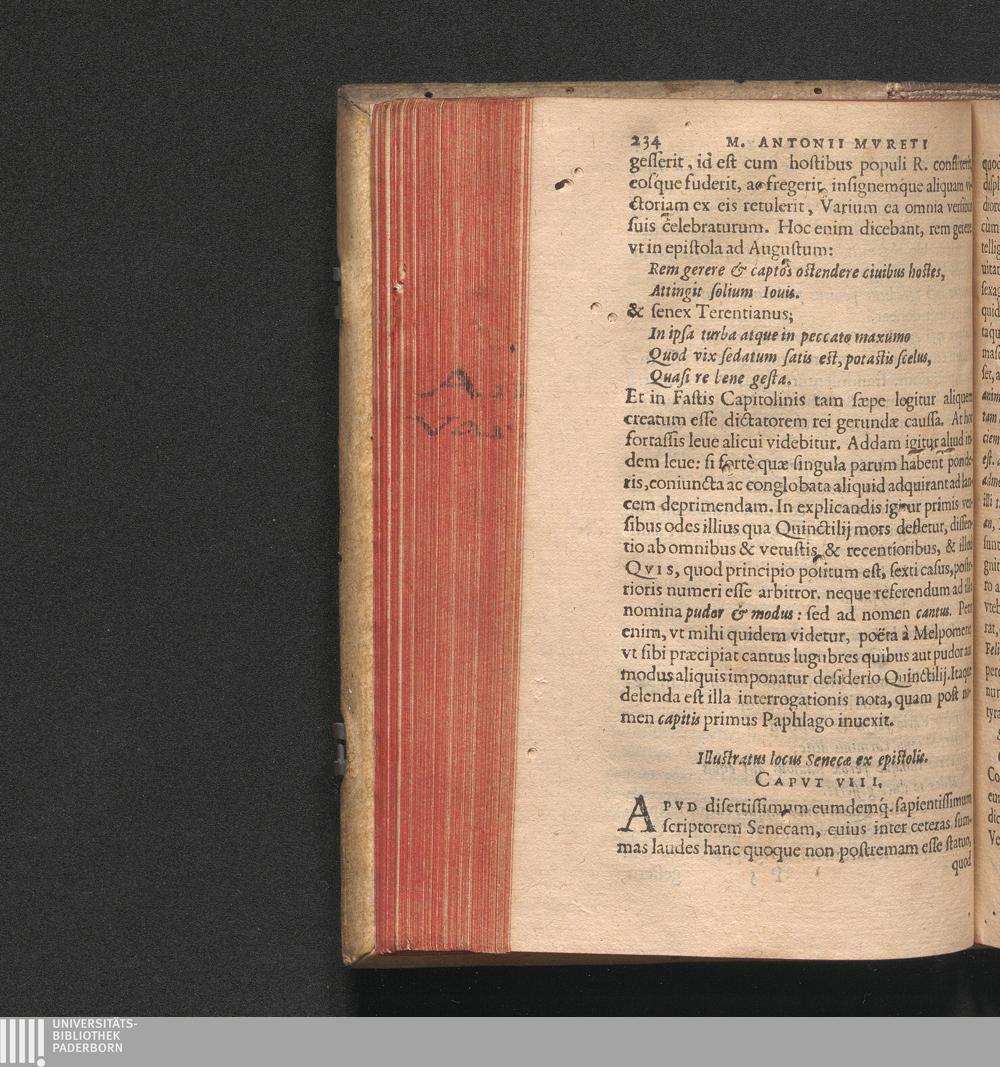 234 M. ANTONII MVRETI
gesserit, id est cum hostibus populi R. conflixerit,
eosque fuderit, ac fregerit, insignemque aliquam vi-
ctoriam ex eis retulerit, Varium ea omnia versibus
suis celebraturum. Hoc enim dicebant, rem gerere
vt in epistola ad Augustum:
Rem gerere & captos ostendere ciuibus hostes,
Attingit solium Iouis.
& senex Terentianus;
In ipsa turba atque in peccato maxumo
Quod vix sedatum satis est, potastis scelus,
Quasi re bene gesta.
Et in Fastis Capitolinis tam sæpe legitur aliquem
creatum esse dictatorem rei gerundæ caussa. At hoc
fortassis leue alicui videbitur. Addam igitur aliud in-
dem leue: si fortè quæ singula parum habent ponde-
ris, coniuncta ac conglobata aliquid adquirant ad lan-
cem deprimendam. In explicandis igitur primis ver-
sibus odes illius qua Quinctilij mors defletur, dissen-
tio ab omnibus & vetustis & recentioribus, & illud
QVIS, quod principio positum est, sexti casus, poste-
rioris numeri esse arbitror. neque referendum ad illa
nomina pudor & modus: sed ad nomen cantus. Petit
enim, vt mihi quidem videtur, poëta à Melpomene
vt sibi præcipiat cantus lugubres quibus aut pudor aut
modus aliquis imponatur desiderio Quinctilij. Itaque
delenda est illa interrogationis nota, quam post no-
men capitis primus Paphlago inuexit.
Illustratus locus Senecæ ex epistolis.
CAPVT VIII.
APVD disertissimum eumdemq. sapientissimum
scriptorem Senecam, cuius inter ceteras sum-
mas laudes hanc quoque non postremam esse statuo,
quod
UNIVERSITÄTS-
BIBLIOTHEK
PADERBORN